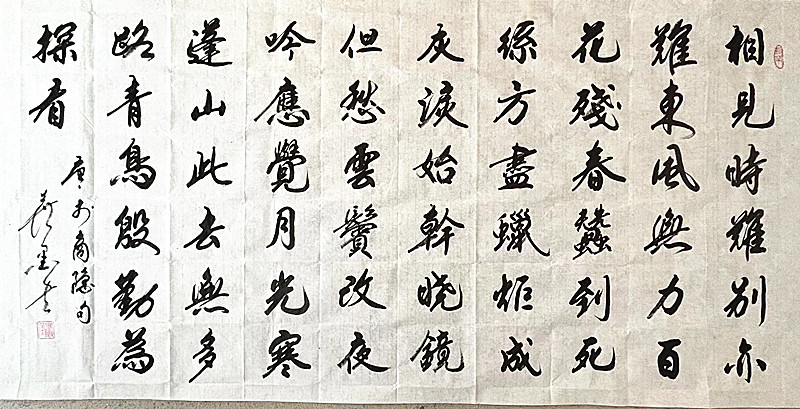 相見時難別亦
難東風無力百
花殘春蠶到死
絲方盡蠟炬成
灰淚始幹曉鏡
但愁雲鬢改夜
吟應覺月光寒
蓬山此去無多
路青鳥殷勤為
探看
唐李商隱句